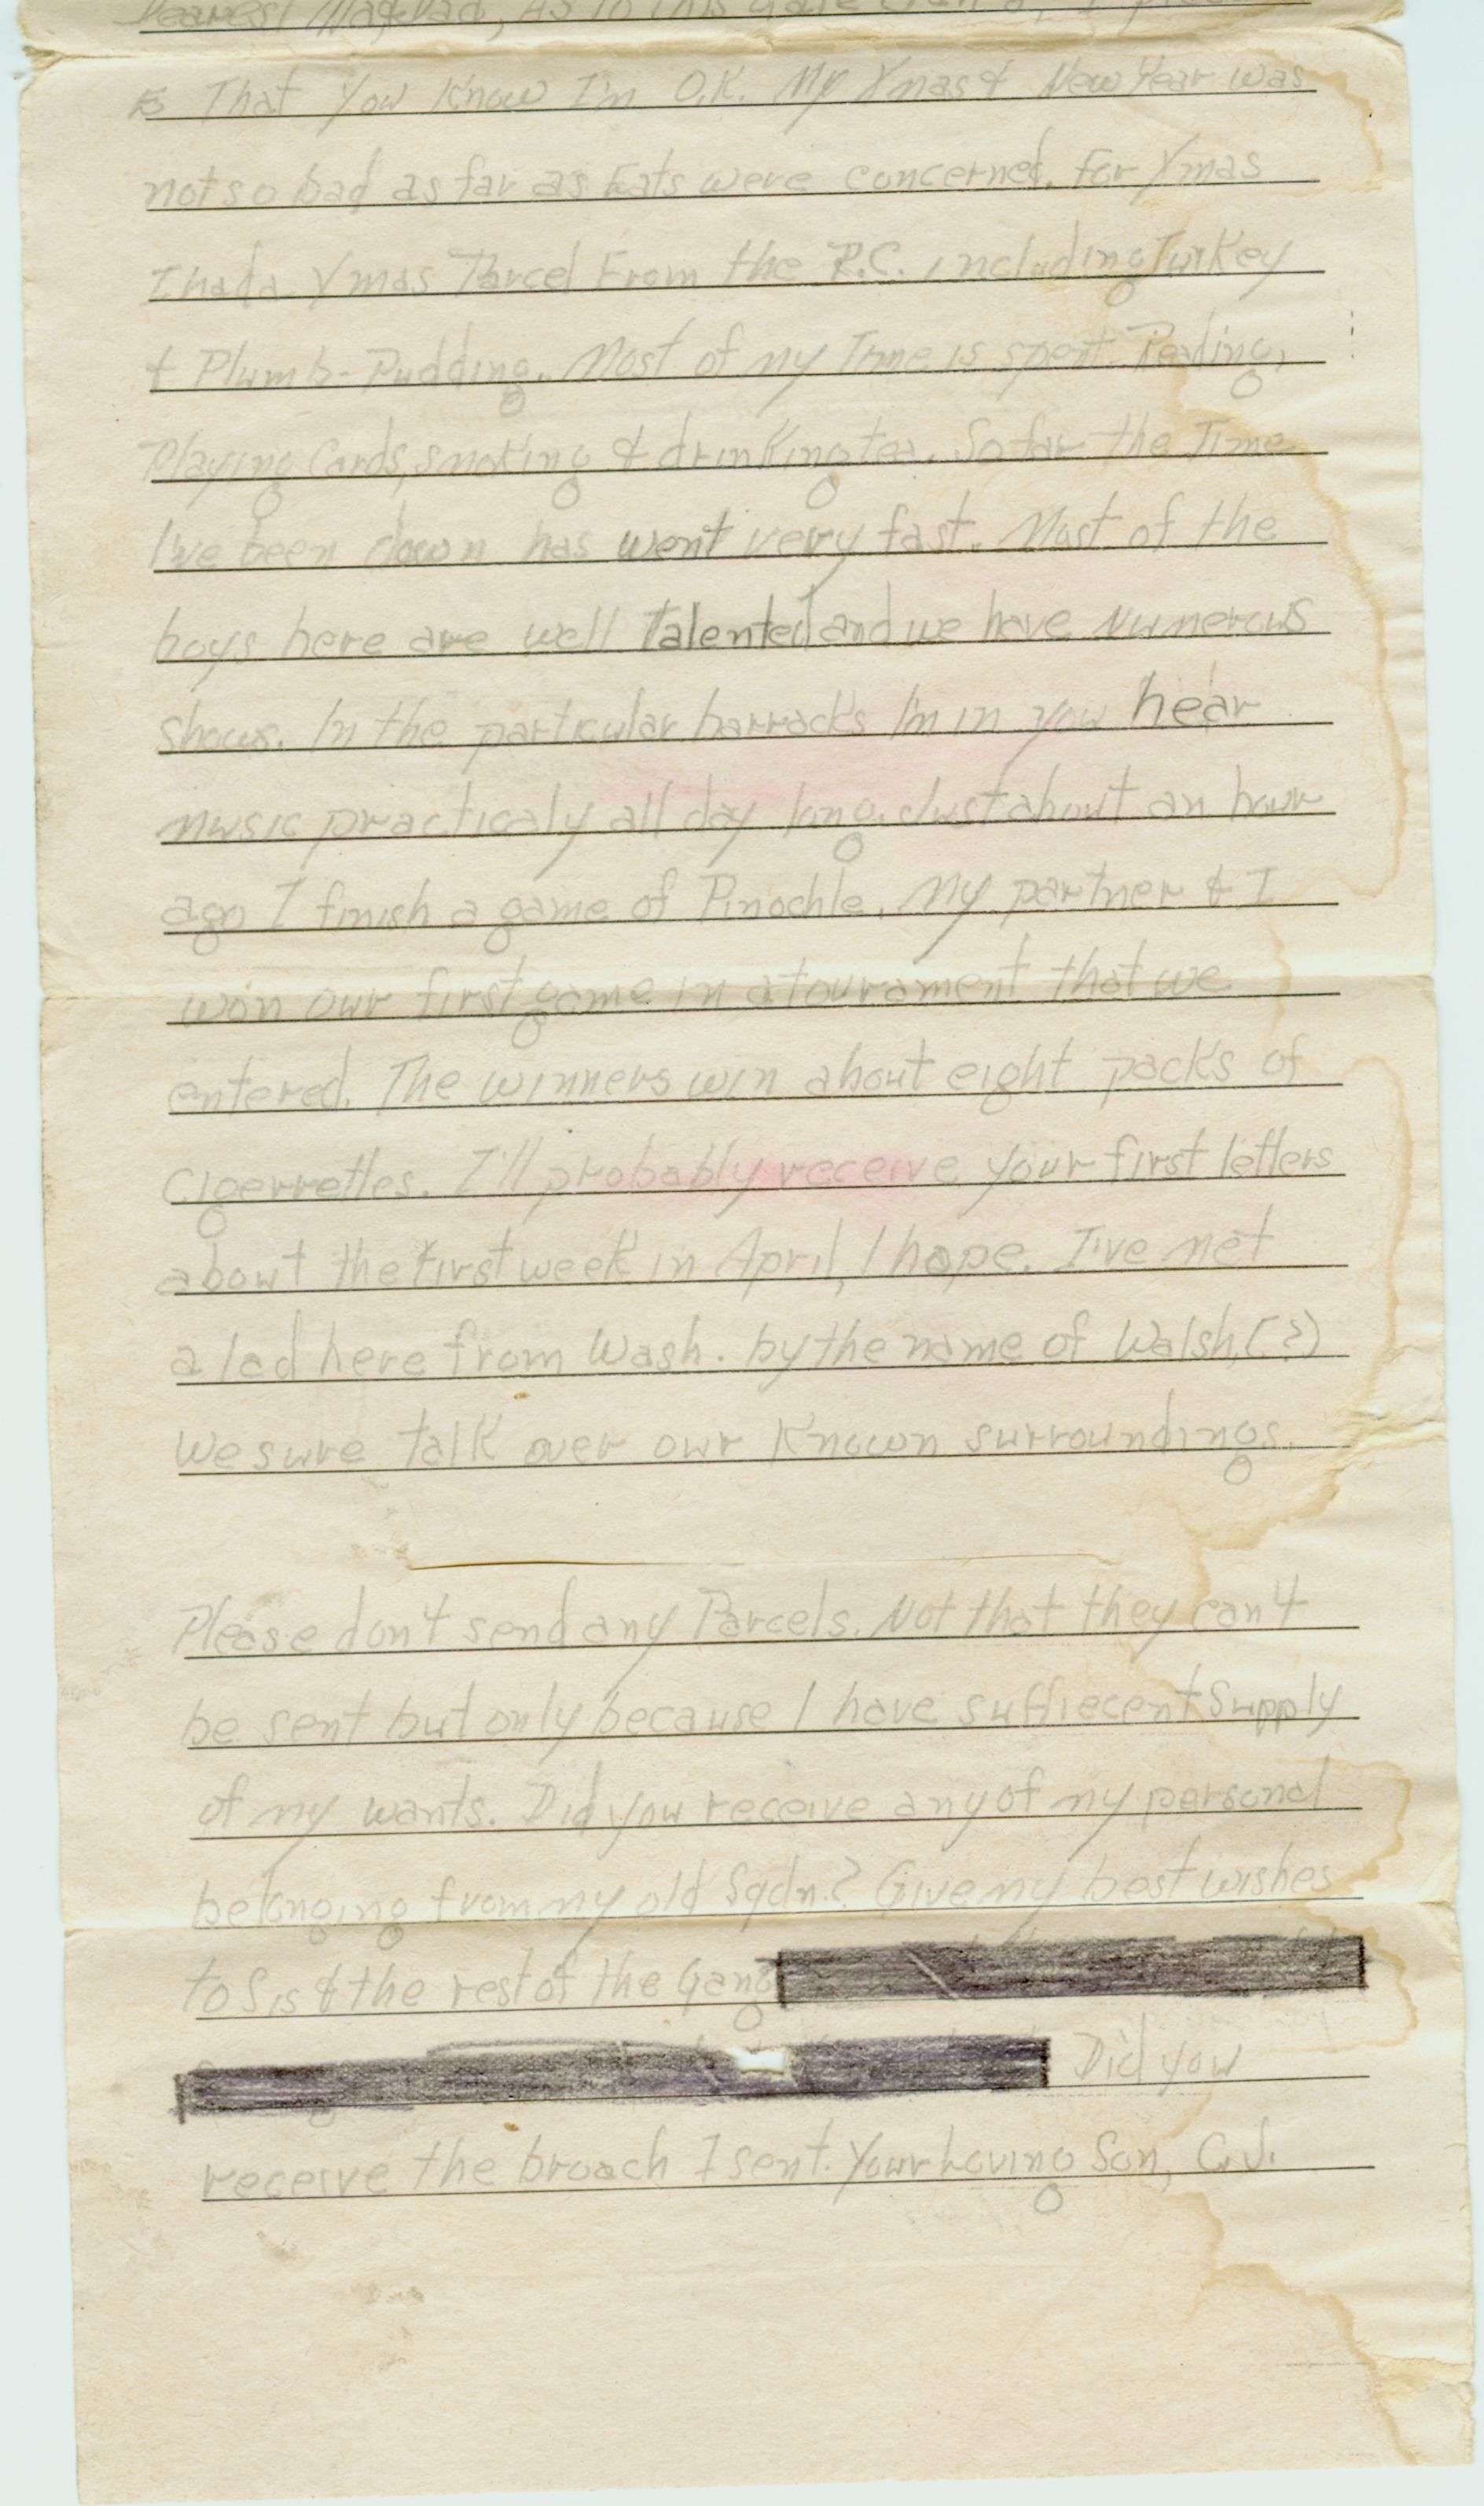 Dearest Ma & Dad, As to this date
That You Know I'm O.K. My Xmas & New Year was
not so bad as far as Eats were concerned. For Xmas
I had a Xmas Parcel From the R.C. including Turkey
& Plumb-Pudding. Most of my Time is spent Reading,
Playing Cards, smoking & drinking tea. So far the Time
I've been down has went very fast. Most of the
boys here are well Talented and we have numerous
shows. In the particular barracks I'm in you hear
music practicaly all day long. Just about an hour
ago I finish a game of Pinochle. My partner & I
won our first game in a tourament that we
entered. The winners win about eight packs of
Cigerrettes. I'll probably receive your first letters
about the first week in April, I hope. I've met
a lad here from Wash. by the name of Walsh,(?)
We sure talk over our Known surroundings.
Please don't send any Parcels. Not that they can't
be sent but only because I have suffiecent supply
of my wants. Did you receive any of my personal
belonging from my old Sqdn.? Give my best wishes
to Sis & the rest of the Gang
Did you
receive the broach I sent. Your Loving Son, C.J.